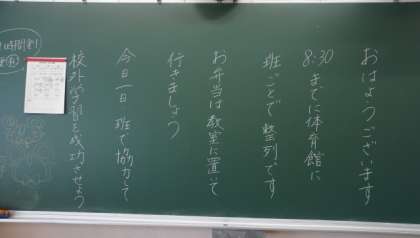 おはようございます
8:30までに体育館に
班ごとで整列です
お弁当は教室に置いて
行きましょう
今日一日班で協力して
校外学習を成功させよう